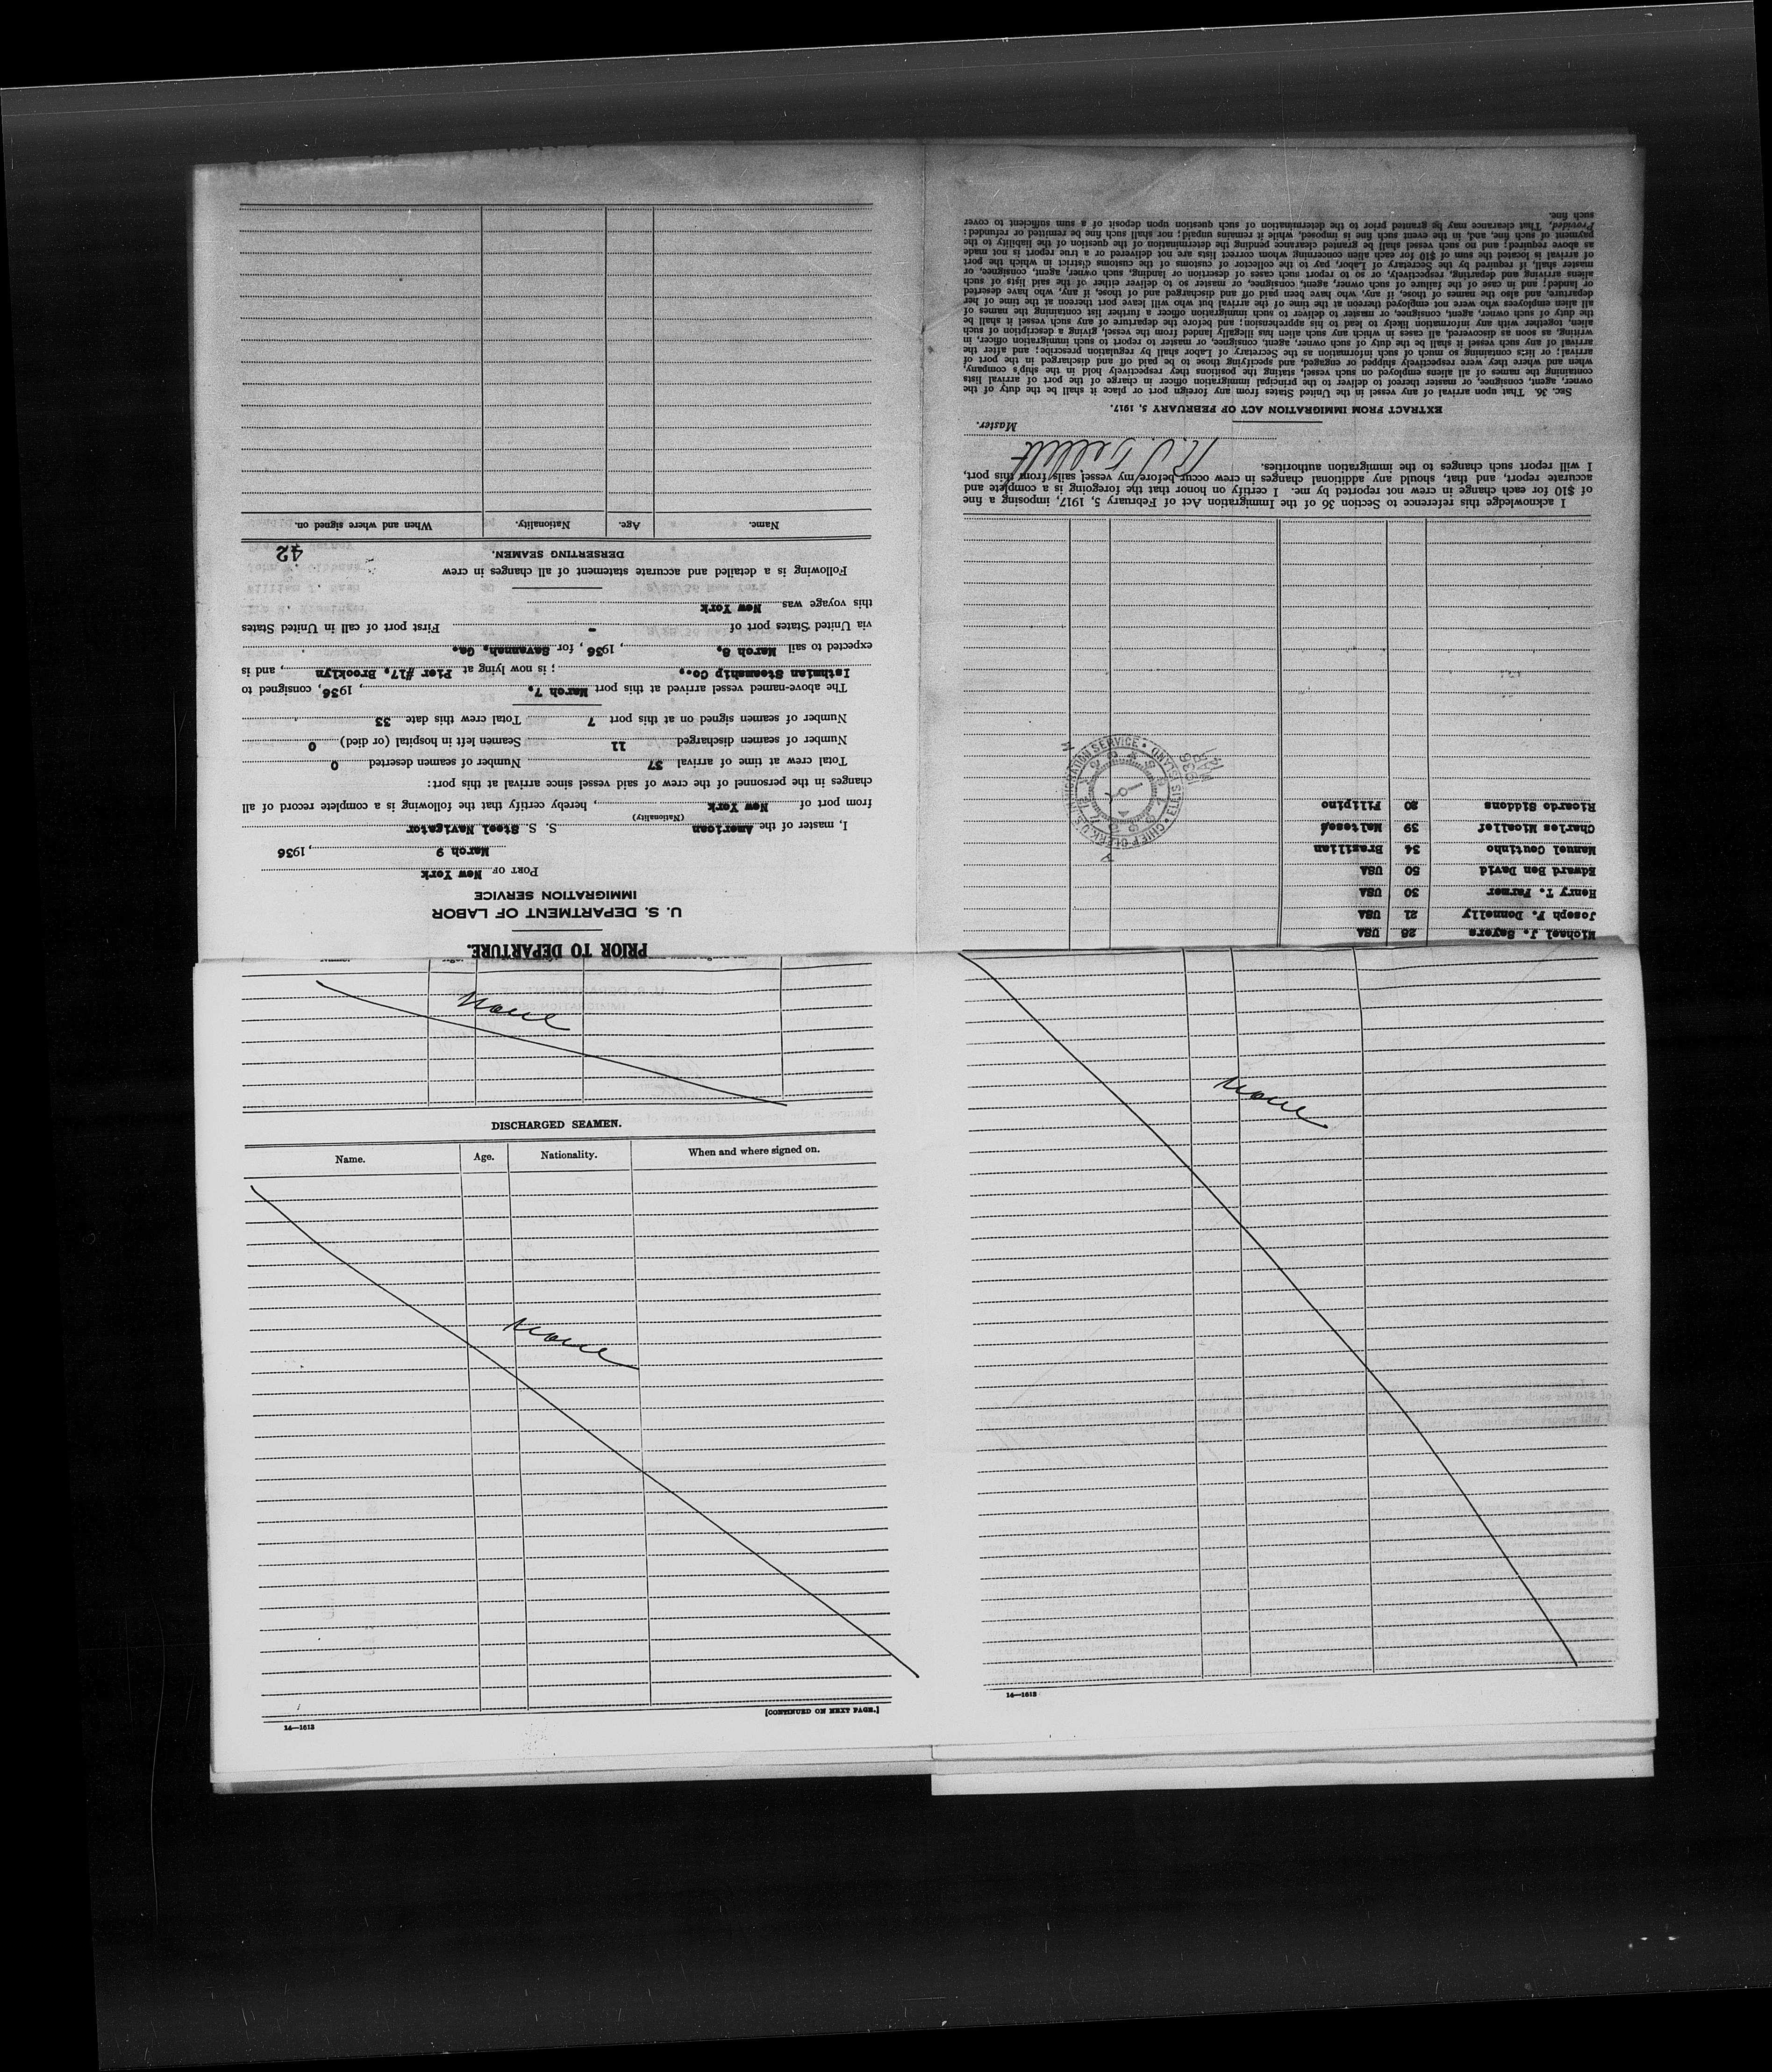 PRIOR TO DEPARTURE.
U. S. DEPARTMENT OF LABOR
IMMIGRATION SERVICE
PORT OF New York
March 9, 1936
I, master of the American S. S. Steel Navigator
(Nationality)
from port of New York, hereby certify that the following is a complete record of all
changes in the personnel of the crew of said vessel since arrival at this port:
Total crew at time of arrival 37 Number of seamen deserted 0
Number of seamen discharged 11 Seamen left in hospital (or died) 0
Number of seamen signed on at this port 7 Total crew this date 33
The above-named vessel arrived at this port March 7, 1936, consigned to
Isthmian Steamship Co., ; is now lying at Pier #17, Brooklyn, and is
expected to sail March 8, 1936, for Savannah, Ga.
via United States port of - First port of call in United States
this voyage was New York
Following is a detailed and accurate statement of all changes in crew
DERSERTING SEAMEN.
42
Name. Age. Nationality. When and where signed on.
Michael J. Sayers 26 USA
Joseph F. Donnelly 21 USA
Henry T. Farmer 30 USA
Edward Ben David 50 USA
Manuel Coutinho 34 Brazilian
Charles Micallef 39 Maltese
Ricardo Siddons 20 Filipino
CHIEF CLERK, U. S. IMMIGRATION SERVICE • ELLIS ISLAND •
1936
MAR
I acknowledge this reference to Section 36 of the Immigration Act of February 5, 1917, imposing a fine
of $10 for each change in crew not reported by me. I certify on honor that the foregoing is a complete and
accurate report, and that, should any additional changes in crew occur before my vessel sails from this port,
I will report such changes to the immigration authorities.
Master.
EXTRACT FROM IMMIGRATION ACT OF FEBRUARY 5, 1917.
Sec. 36. That upon arrival of any vessel in the United States from any foreign port or place it shall be the duty of the
owner, agent, consignee, or master thereof to deliver to the principal immigration officer in charge of the port of arrival lists
containing the names of all aliens employed on such vessel, stating the positions they respectively hold in the ship's company,
when and where they were respectively shipped or engaged, and specifying those to be paid off and discharged in the port of
arrival; or lists containing so much of such information as the Secretary of Labor shall by regulation prescribe; and after the
arrival of any such vessel it shall be the duty of such owner, agent, consignee, or master to report to such immigration officer, in
writing, as soon as discovered, all cases in which any such alien has illegally landed from the vessel, giving a description of such
alien, together with any information likely to lead to his apprehension; and before the departure of any such vessel it shall be
the duty of such owner, agent, consignee, or master to deliver to such immigration officer a further list containing the names of
all alien employees who were not employed thereon at the time of the arrival but who will leave port thereon at the time of her
departure, and also the names of those, if any, who have been paid off and discharged and of those, if any, who have deserted
or landed; and in case of the failure of such owner, agent, consignee, or master so to deliver either of the said lists of such
aliens arriving and departing, respectively, or so to report such cases of desertion or landing, such owner, agent, consignee, or
master shall, if required by the Secretary of Labor, pay to the collector of customs of the customs district in which the port
of arrival is located the sum of $10 for each alien concerning whom correct lists are not delivered or a true report is not made
as above required; and no such vessel shall be granted clearance pending the determination of the question of the liability to the
payment of such fine, and, in the event such fine is imposed, while it remains unpaid; nor shall such fine be remitted or refunded:
Provided, That clearance may be granted prior to the determination of such question upon deposit of a sum sufficient to cover
such fine.
None
DISCHARGED SEAMEN.
Name. Age. Nationality. When and where signed on.
None
14—1613
[CONTINUED ON NEXT PAGE.]
None
14—1613